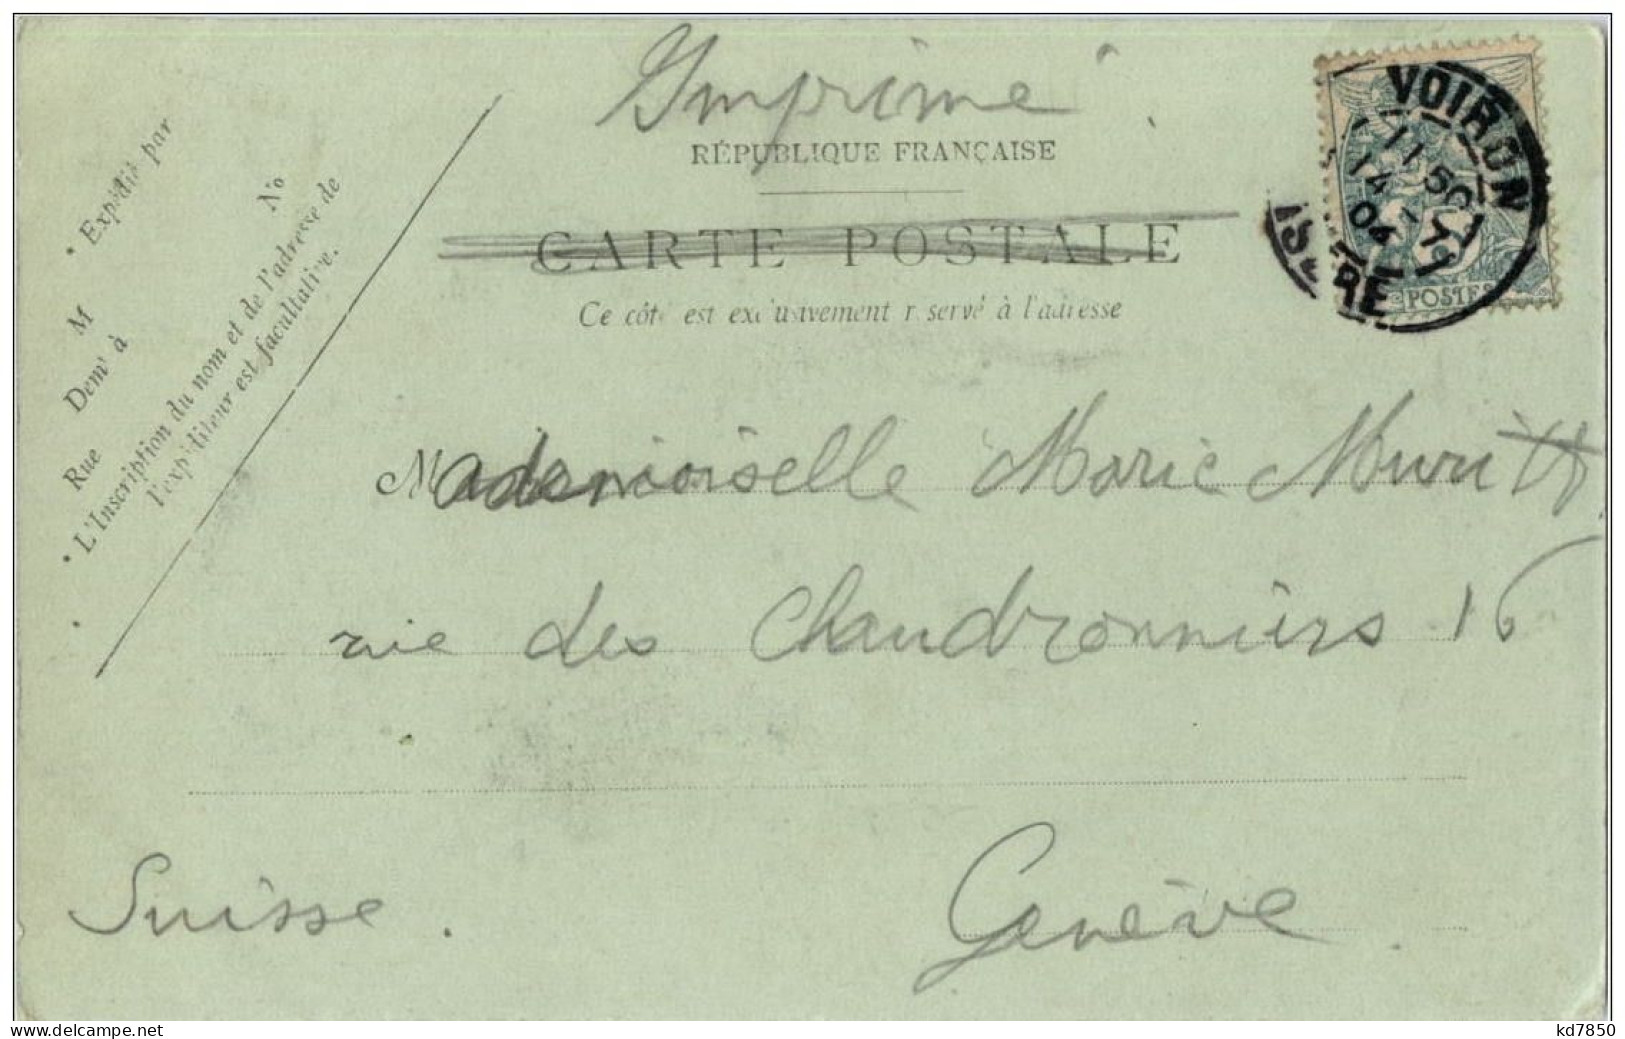 Imprimé.
RÉPUBLIQUE FRANÇAISE
CARTE POSTALE
Ce côté est exclusivement réservé à l'adresse
Expédié par
M No
Demt à
Rue
L'Inscription du nom et de l'adresse de
l'expéditeur est facultative.
VOIRON
11 50
14
04
ISÈRE
5
POSTES
Mademoiselle Marie
rue des Chaudronniers 16
Suisse. Genève
www.delcampe.net
kd7850